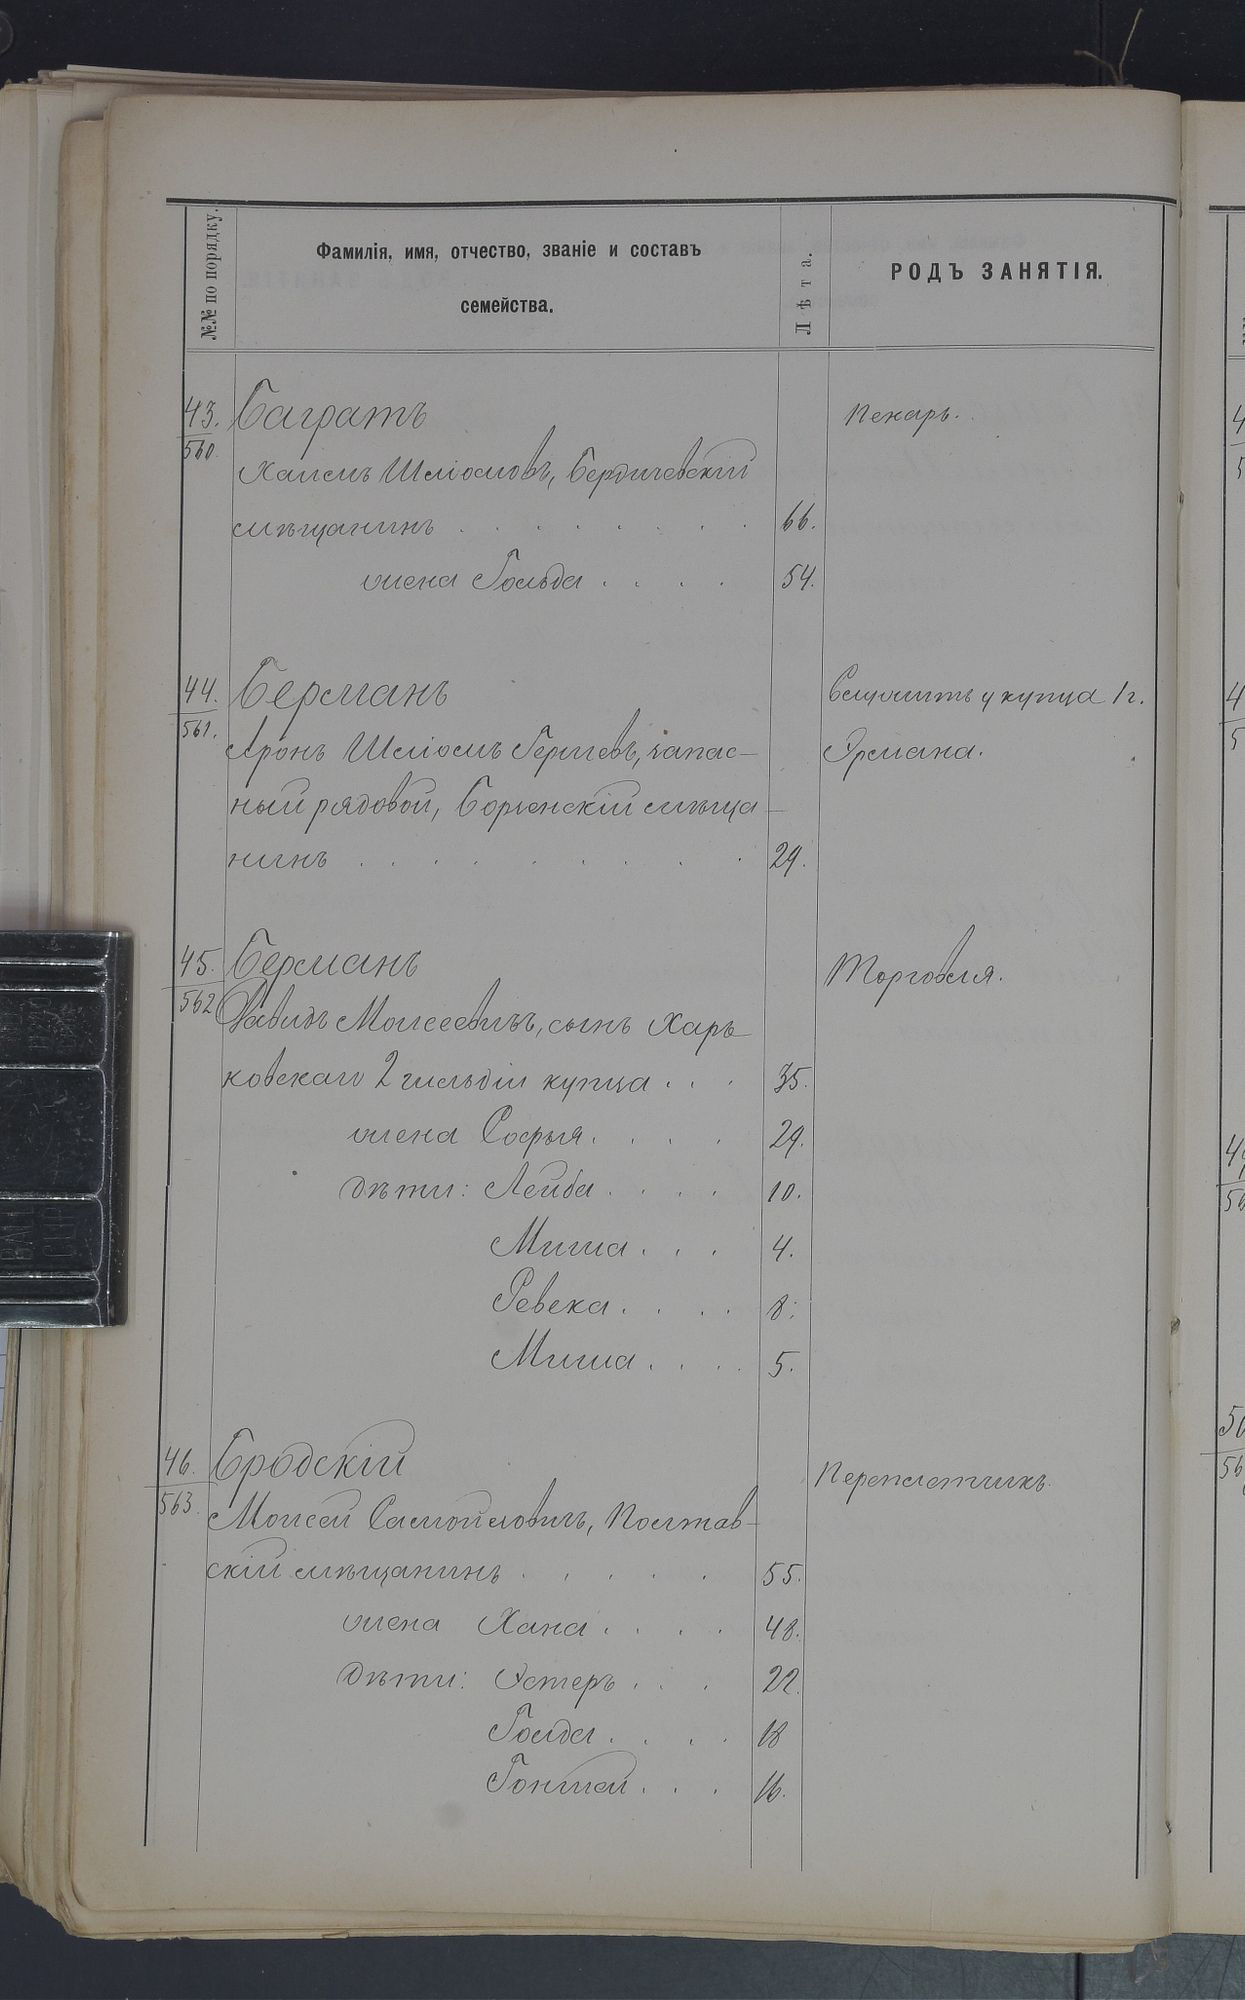 №№ по порядку.
Фамилія, имя, отчество, званіе и составъ
семейства.
Лѣта.
РОДЪ ЗАНЯТІЯ.
43. Баграть Пекарь.
560.
Хаимъ Шліомовъ, Бердичевскій
мѣщанинъ . . . . . . . 66.
жена Гольда . . . . 54.
44. Берманъ Служитъ у купца 1 г.
561. Аронъ Шліомъ Гершевъ, запас- Эрмана.
ный рядовой, мѣща-
нинъ . . . . . . . . 29.
45. Берманъ Торговля.
562 Давидъ Моисеевичъ, сынъ Харь
ковскаго 2 гильдіи купца . . . 35.
жена Софья . . . . 29.
дѣти: Лейба . . . . 10.
Миша . . . 4.
Ревека . . . . 8.
Миша . . . . 5.
46. Бродскій Переплетчикъ.
563. Моисей Самойловичъ, Полтав-
скій мѣщанинъ . . . . . 55.
жена Хана . . . . 48.
дѣти: Эстеръ . . . 22.
Голда . . . . 18
16.